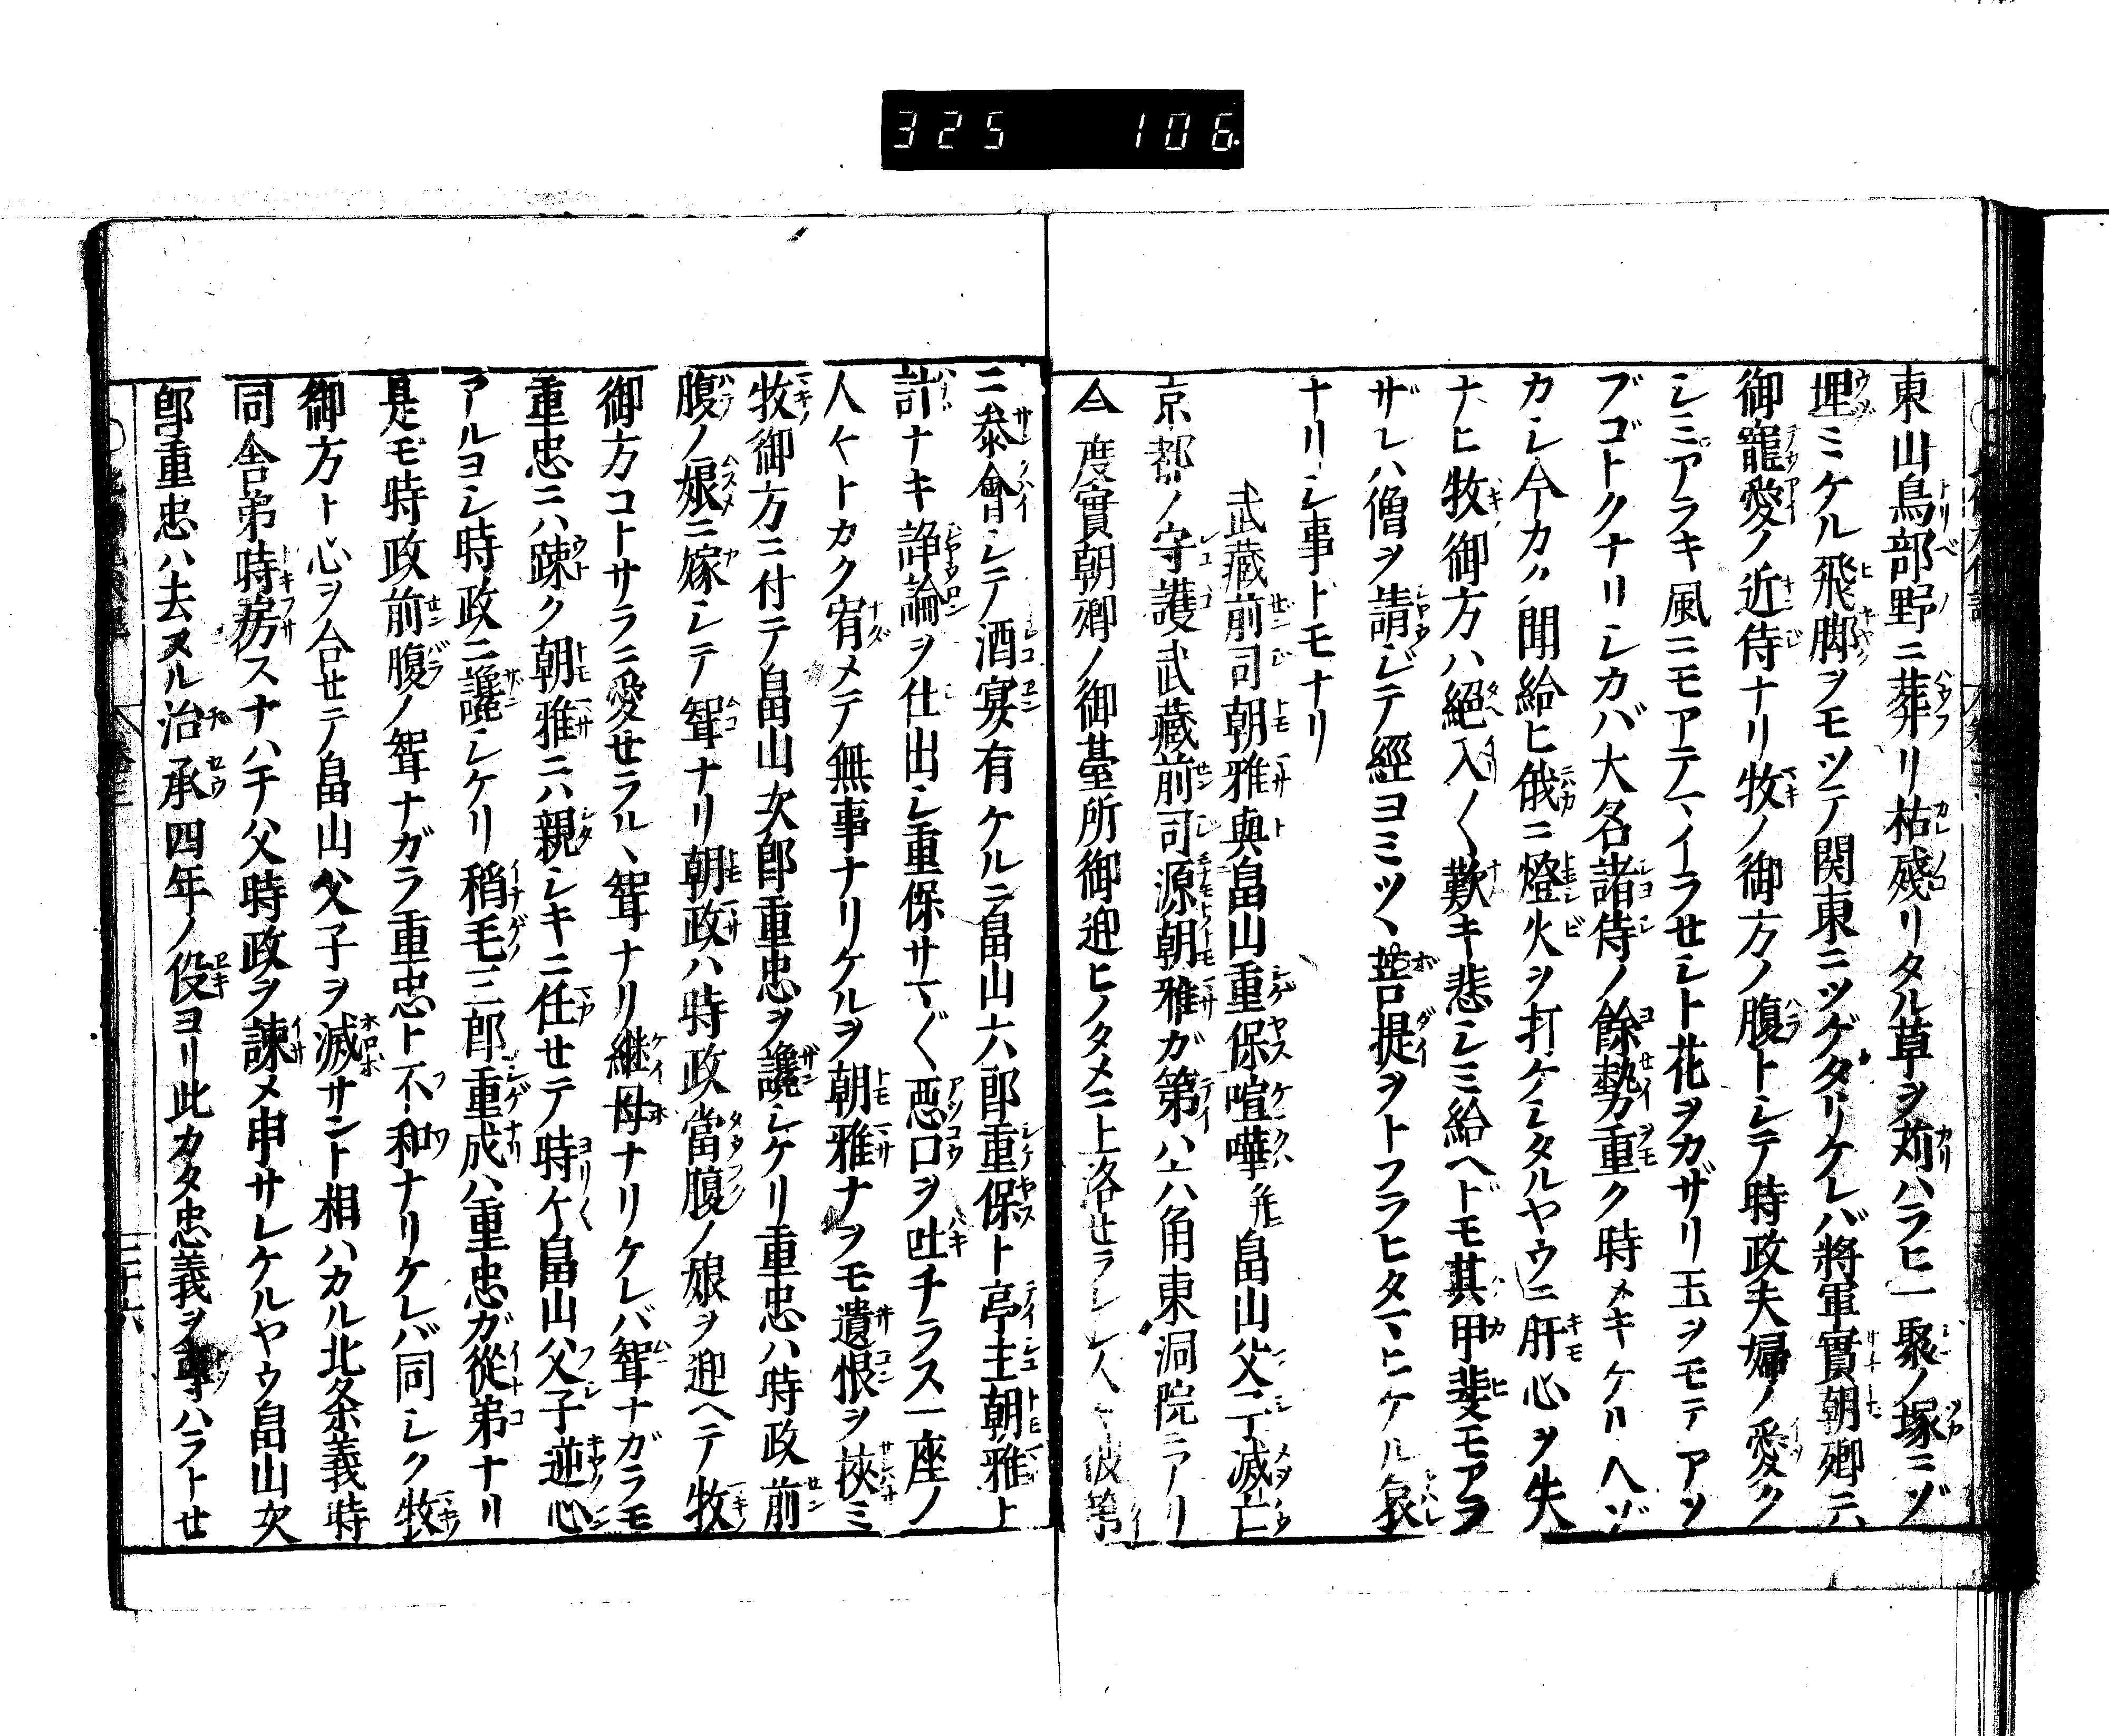 325 106
東山鳥部野ニ葬リ枯殘リタル草ヲ苅ハラヒ一聚ノ塚ニゾ
埋ミケル飛脚ヲモツテ関東ニツゲタリケレバ將軍實朝卿ニハ
御寵愛ノ近侍ナリ牧ノ御方ノ腹トシテ時政夫婦ノ愛イツク
シミアラキ風ニモアテマイラセシト花ヲカザリ玉ヲモテアソ
ブゴトクナリシカバ大名諸侍ノ餘勢重ク時メキケリヘゾ
カシ今カク聞給ヒ俄ニ燈火ヲ打ケシタルヤウニ肝心ヲ失
ナヒ牧御方ハ絕入〱歎キ悲シミ給ヘドモ其甲斐モアラ
ザレハ僧ヲ請ジテ經ヨミツヽ菩提ヲトフラヒタマヒケル哀
ナリシ事ドモナリ
武藏前司朝雅與畠山重保喧嘩并畠山父子滅亡
京都ノ守護武藏前司源朝雅ガ第ハ六角東洞院ニアリ
今度實朝卿ノ御臺所御迎ヒノタメニ上洛セラレシ人々彼等
ニ參會シテ酒宴有ケルニ畠山六郎重保ト亭主朝雅ト
計ナキ諍論ヲ仕出シ重保サマ〲惡口ヲ吐チラス一座ノ
人々トカク宥メテ無事ナリケルヲ朝雅ナヲモ遺恨ヲ挾ミ
牧御方ニ付テ畠山次郎重忠ヲ讒シケリ重忠ハ時政前
腹ノ娘ニ嫁シテ聟ナリ朝政ハ時政當腹ノ娘ヲ迎ヘテ牧
御方コトサラニ愛セラルヽ聟ナリ継母ナリケレバ聟ナガラモ
重忠ニハ踈ク朝雅ニハ親シキニ任セテ時々畠山父子逆心
アルヨシ時政ニ讒シケリ稻毛三郎重成ハ重忠ガ從弟ナリ
是モ時政前腹ノ聟ナガラ重忠ト不和ナリケレバ同シク牧
御方ト心ヲ合セテ畠山父子ヲ滅サント相ハカル北条義時
同舎弟時房スナハチ父時政ヲ諫メ申サレケルヤウ畠山次
郎重忠ハ去ヌル治承四年ノ役ヨリ此カタ忠義ヲ專ハラトセ
三十六